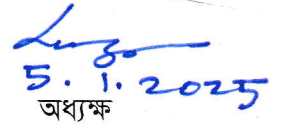 5.1.2025
অধ্যক্ষ